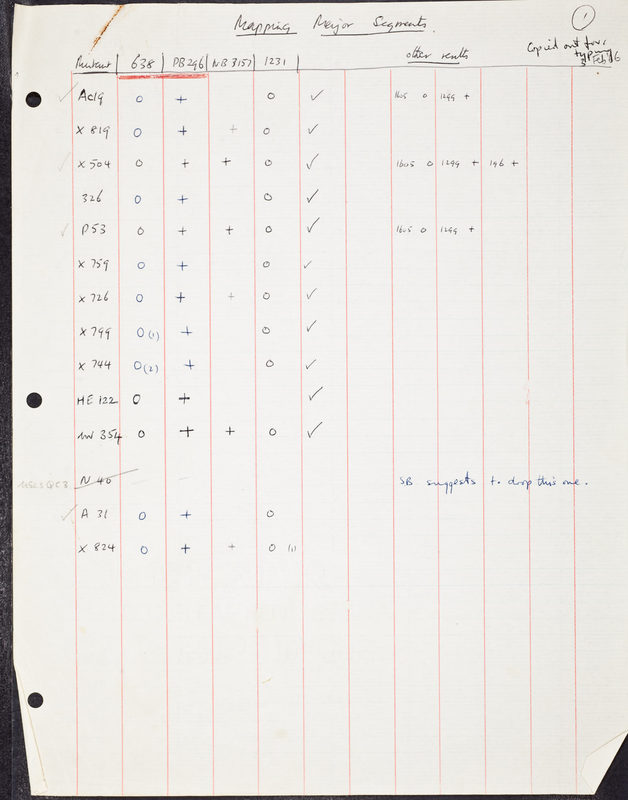 1
Mapping Major Segments.
Copied out for
typing
3 Feb 76
Mutant 638 PB296 NB3157 1231 other results
Ac19 0 + 0 ✓ 1605 0 1299 +
X 819 0 + + 0 ✓
X 504 0 + + 0 ✓ 1605 0 1299 + 196 +
326 0 + 0 ✓
P53 0 + + 0 ✓ 1605 0 1299 +
X 759 0 + 0 ✓
X 726 0 + + 0 ✓
X 799 0 (1) + 0 ✓
X 744 0 (2) + 0 ✓
HE 122 0 + ✓
354 0 + + 0 ✓
N 40 SB suggests to drop this one.
A 31 0 + 0
X 824 0 + + 0 (1)